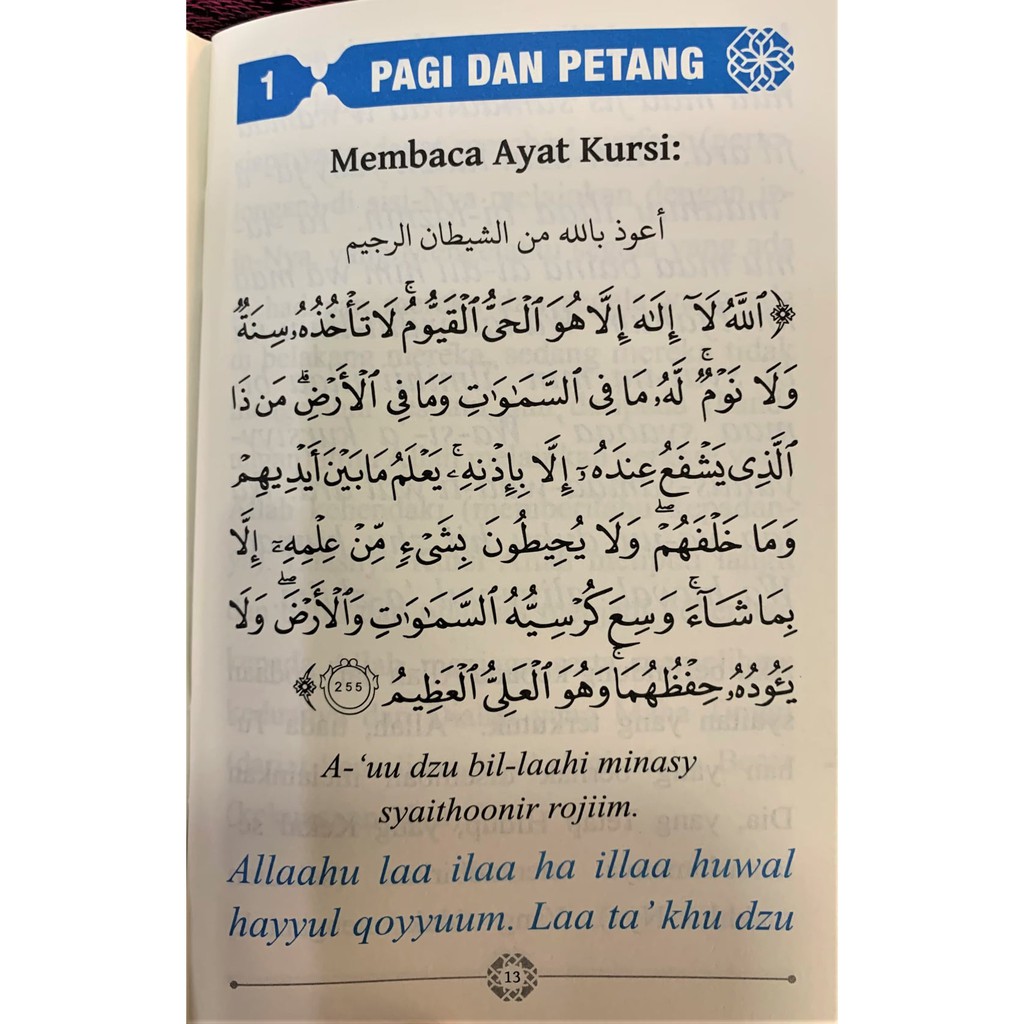 1 PAGI DAN PETANG
Membaca Ayat Kursi:
أعوذ بالله من الشيطان الرجيم
﴿ٱللَّهُ لَآ إِلَـٰهَ إِلَّا هُوَ ٱلْحَىُّ ٱلْقَيُّومُ ۚ لَا تَأْخُذُهُۥ سِنَةٌ
وَلَا نَوْمٌ ۚ لَّهُۥ مَا فِى ٱلسَّمَـٰوَٰتِ وَمَا فِى ٱلْأَرْضِ ۗ مَن ذَا
ٱلَّذِى يَشْفَعُ عِندَهُۥٓ إِلَّا بِإِذْنِهِۦ ۚ يَعْلَمُ مَا بَيْنَ أَيْدِيهِمْ
وَمَا خَلْفَهُمْ ۖ وَلَا يُحِيطُونَ بِشَىْءٍ مِّنْ عِلْمِهِۦٓ إِلَّا
بِمَا شَآءَ ۚ وَسِعَ كُرْسِيُّهُ ٱلسَّمَـٰوَٰتِ وَٱلْأَرْضَ ۖ وَلَا
يَـُٔودُهُۥ حِفْظُهُمَا ۚ وَهُوَ ٱلْعَلِىُّ ٱلْعَظِيمُ 255﴾
A-‘uu dzu bil-laahi minasy
syaithoonir rojiim.
Allaahu laa ilaa ha illaa huwal
hayyul qoyyuum. Laa ta’khu dzu
13